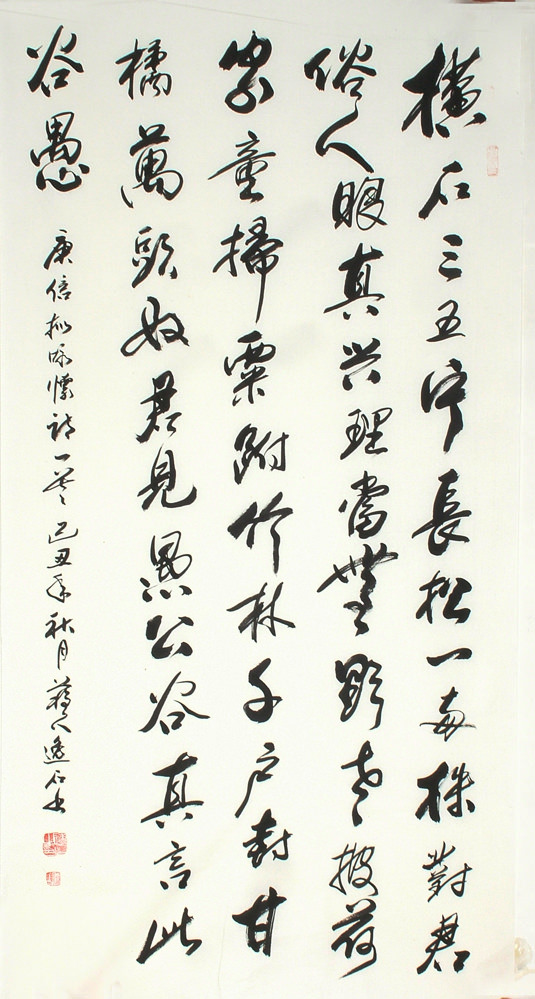 橫石三五片長松一兩株對君
俗人眼真兴理當無野老披荷
家童掃栗跗竹林千户封甘
橘萬頭奴君見愚公谷真言此
谷愚
庾信拟咏懷詩一首 己丑年秋月 人逸石书